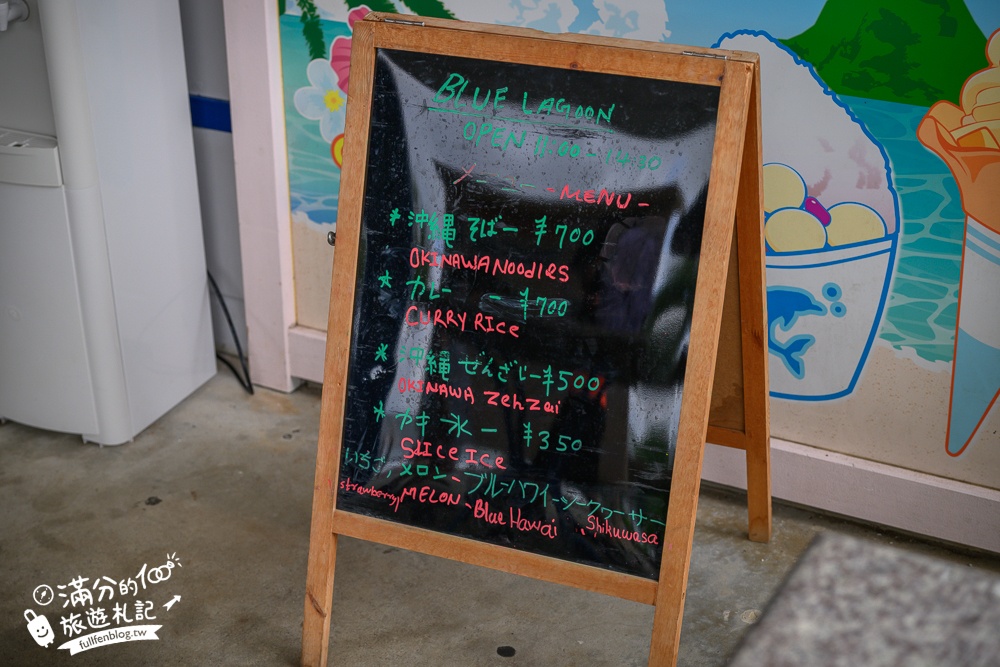 BLUE LAGOON
OPEN 11:00 - 14:30
- MENU -
* 沖縄そばー ¥700
OKINAWA NOODLES
* カレー - ¥700
CURRY RICE
* 沖縄ぜんざいー¥500
OKINAWA Zenzai
* カキ氷ー ¥350
SLICE ICE
いちご, メロン - ブルーハワイーシークヮーサー
strawberry, MELON - Blue Hawai , Shikuwasa
滿分的100
旅遊札記
fullfenblog.tw